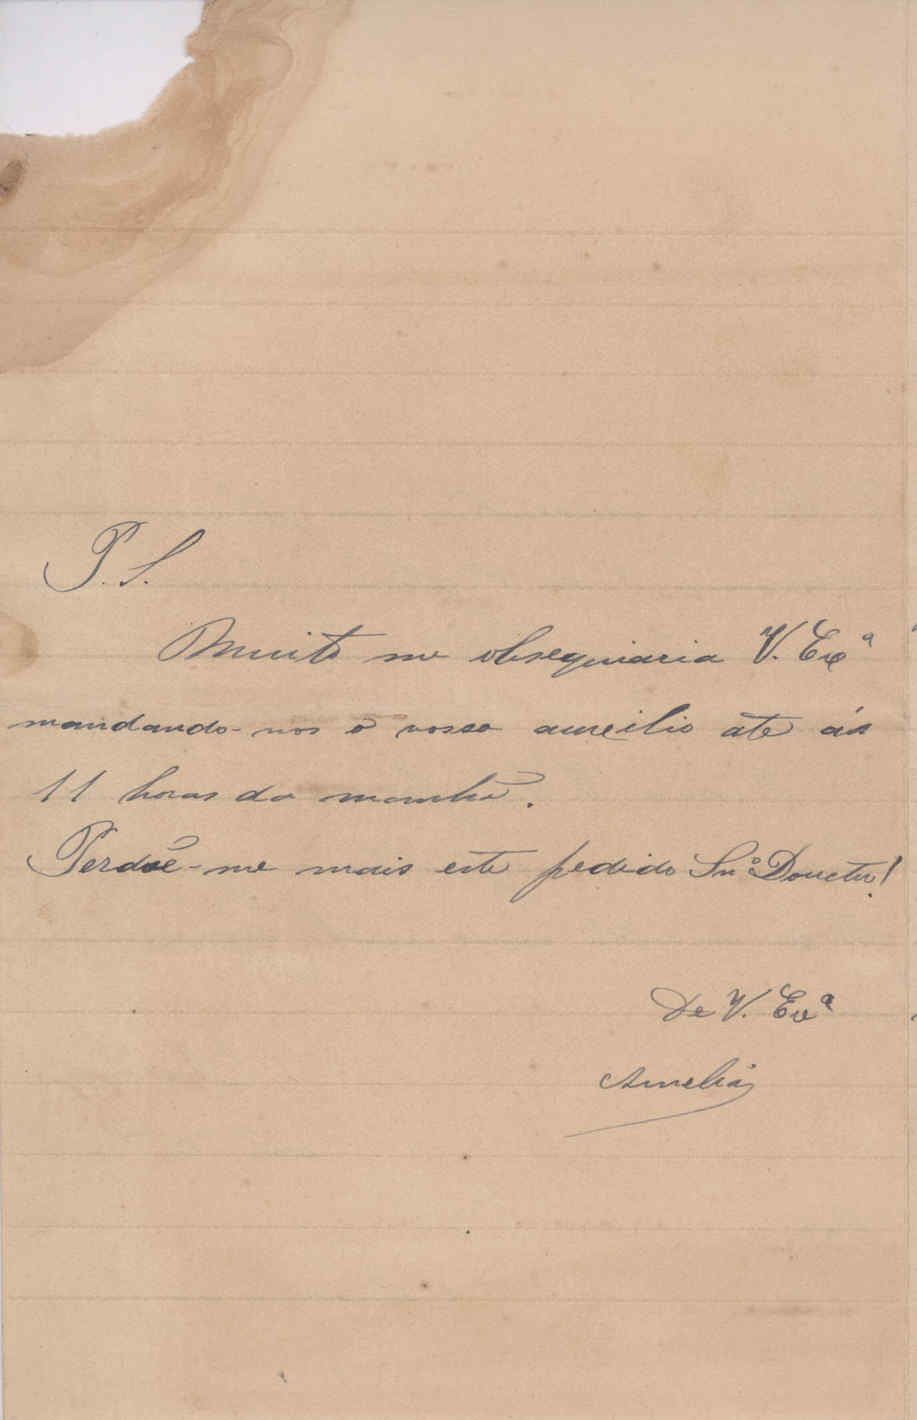 P. S.
Muito me obsequiaria V. Exª
mandando-nos o vosso auxeilio até ás
11 horas da manhã.
Perdoê-me mais este pedido Snº Douctor!
De V. Exª
Amelia